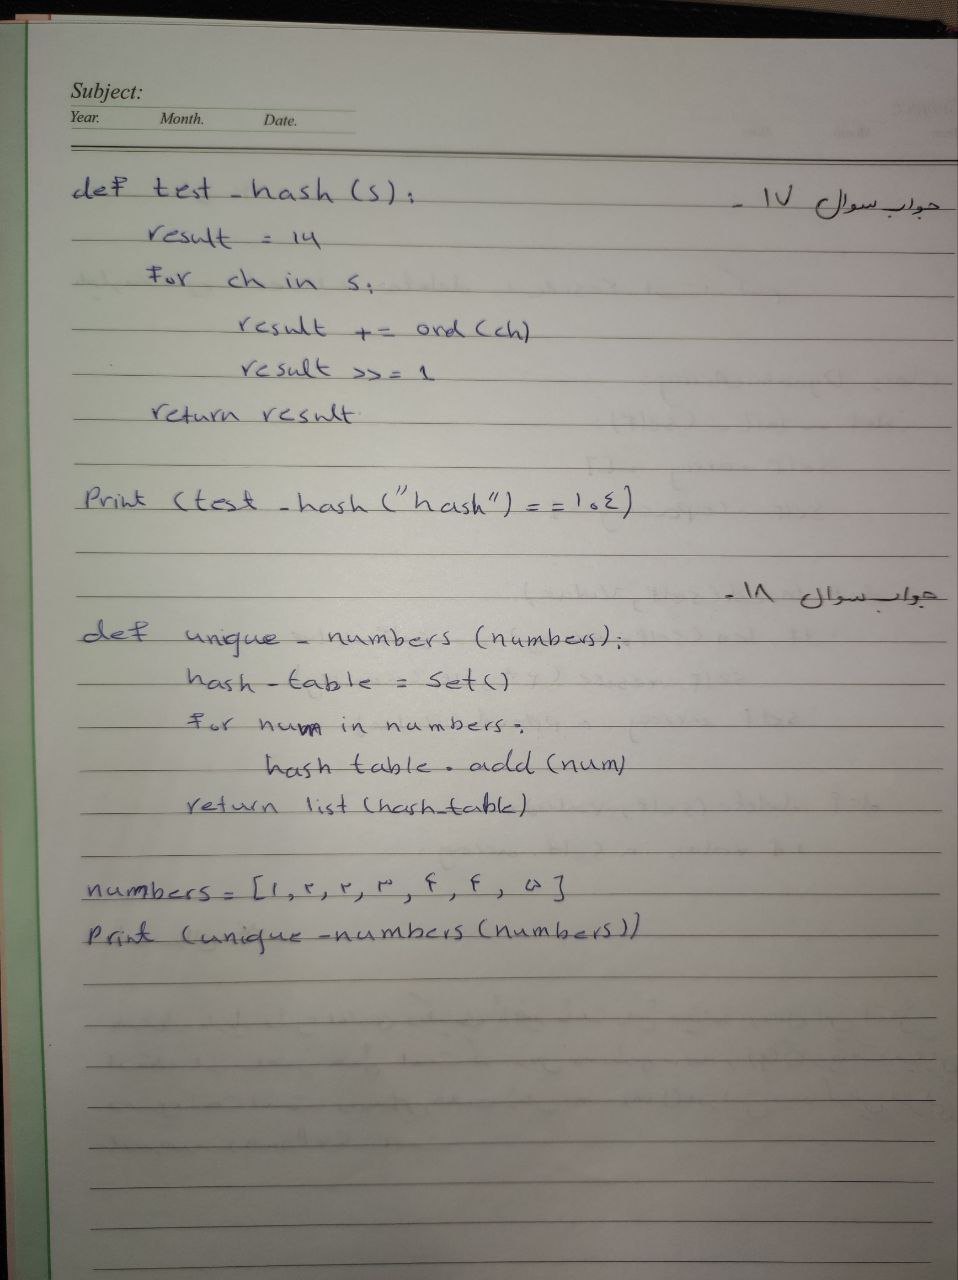 Subject:
Year. Month. Date.
جواب سوال ۱۷ -
def test_hash(s):
result = 14
for ch in s:
result += ord(ch)
result >>= 1
return result
Print (test_hash("hash") == ۱۰٤)
جواب سوال ۱۸ -
def unique_numbers (numbers):
hash_table = set()
for num in numbers:
hash table . add (num)
return list (hash_table)
numbers = [۱, ۲, ۲, ۳, ۴, ۴, ۵]
Print (unique_numbers (numbers))